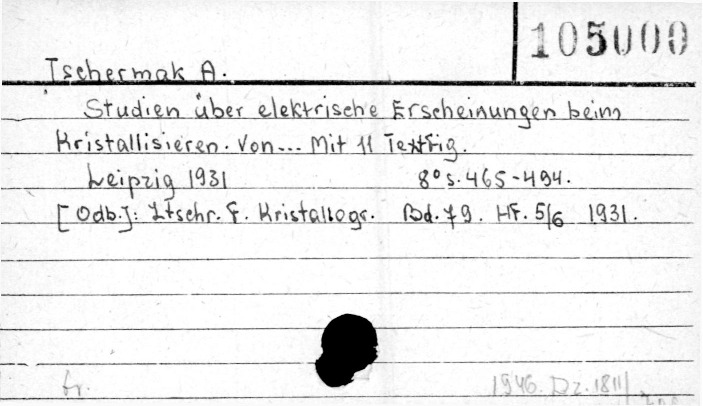 105000
Tschermak A.
Studien über elektrische Erscheinungen beim
Kristallisieren. Von... Mit 11 Textfig.
Leipzig 1931 8° s. 465-494.
[Odb.]: Ztschr. f. Kristallogr. Bd. 79. Hf. 5/6 1931.
fr. 1946. Dz. 1811